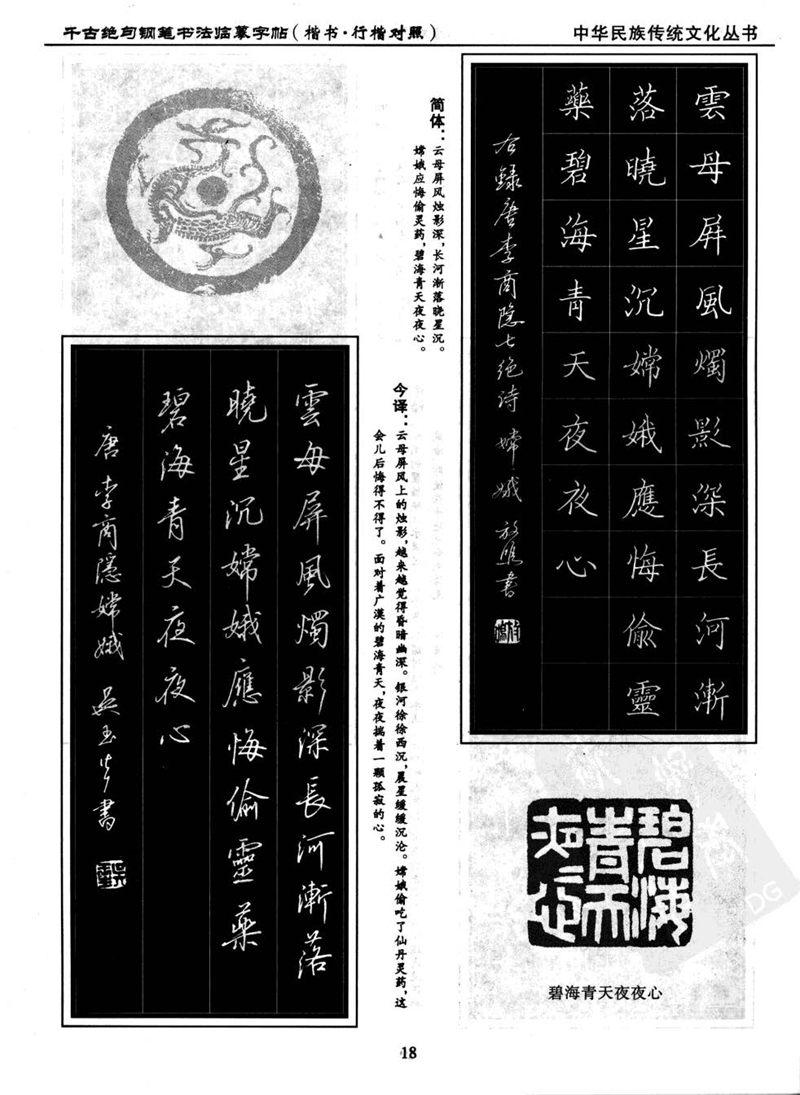 千古绝句钢笔书法临摹字帖(楷书·行楷对照)
中华民族传统文化丛书
雲母屏風燭影深長河漸
落曉星沉嫦娥應悔偷靈
藥碧海青天夜夜心
右録唐李商隐七绝诗嫦娥
简体：云母屏风烛影深，长河渐落晓星沉。
嫦娥应悔偷灵药，碧海青天夜夜心。
今译：云母屏风上的烛影，越来越觉得昏暗幽深。银河徐徐西沉，晨星缓缓沉沦。嫦娥偷吃了仙丹灵药，这
会儿后悔得不得了。面对着广漠的碧海青天，夜夜揣着一颗孤寂的心。
雲母屏風燭影深長河漸落
曉星沉嫦娥應悔偷靈藥
碧海青天夜夜心
唐李商隱嫦娥 吳玉生書
碧海青天夜夜心
碧海青天夜夜心
DG
18